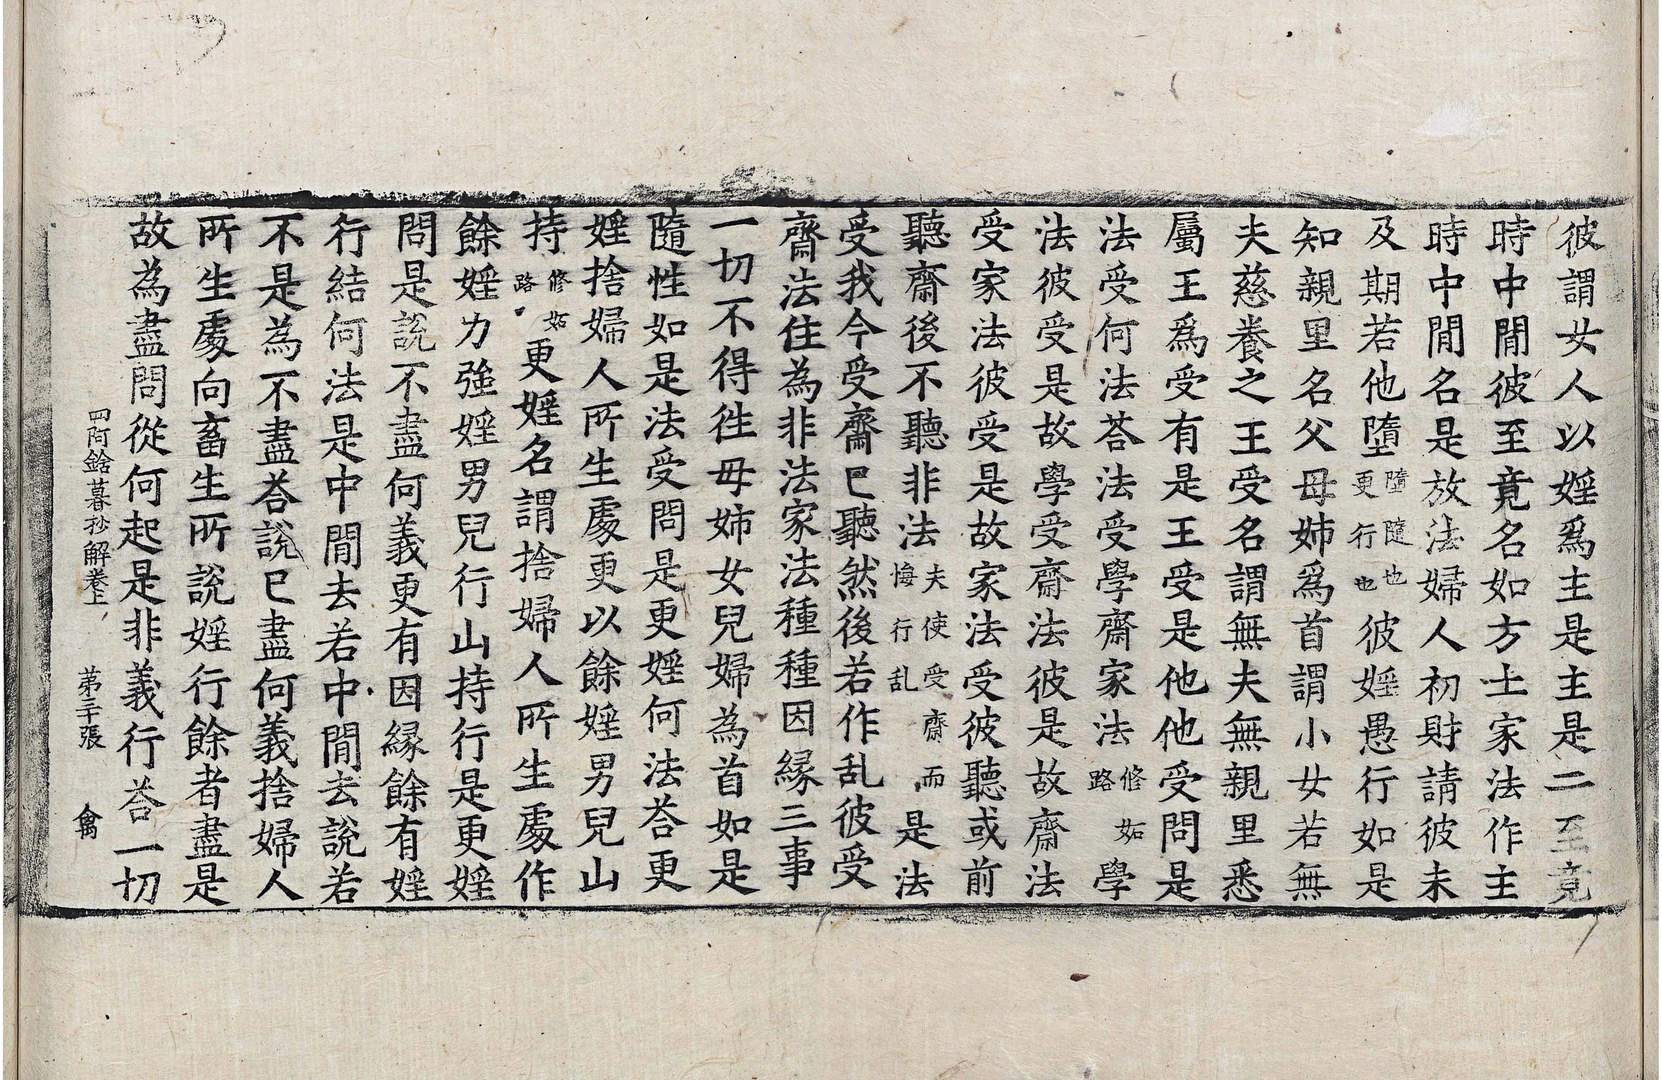 彼謂女人以婬爲主是主是二至竟
時中閒彼至竟名如方土家法作主
時中閒名是放法婦人初財請彼未
及期若他墮墮隨也更行也彼婬愚行如是
知親里名父母姉爲首謂小女若無
夫慈養之王受名謂無夫無親里悉
屬王爲受有是王受是他他受問是
法受何法荅法受學齋家法修妬路學
法彼受是故學受齋法彼是故齋法
受家法彼受是故家法受彼聽或前
聽齋後不聽非法夫使受齋而悔行乱是法
受我今受齋已聽然後若作乱彼受
齋法住為非法家法種種因縁三事
一切不得徃母姉女兒婦為首如是
隨性如是法受問是更婬何法荅更
婬捨婦人所生處更以餘婬男兒山
持修妬路更婬名謂捨婦人所生處作
餘婬力強婬男兒行山持行是更婬
問是說不盡何義更有因縁餘有婬
行結何法是中閒去若中閒去說若
不是為不盡荅說已盡何義捨婦人
所生處向畜生所說婬行餘者盡是
故為盡問從何起是非義行荅一切
四阿鋡暮抄解卷上 第二十張 禽